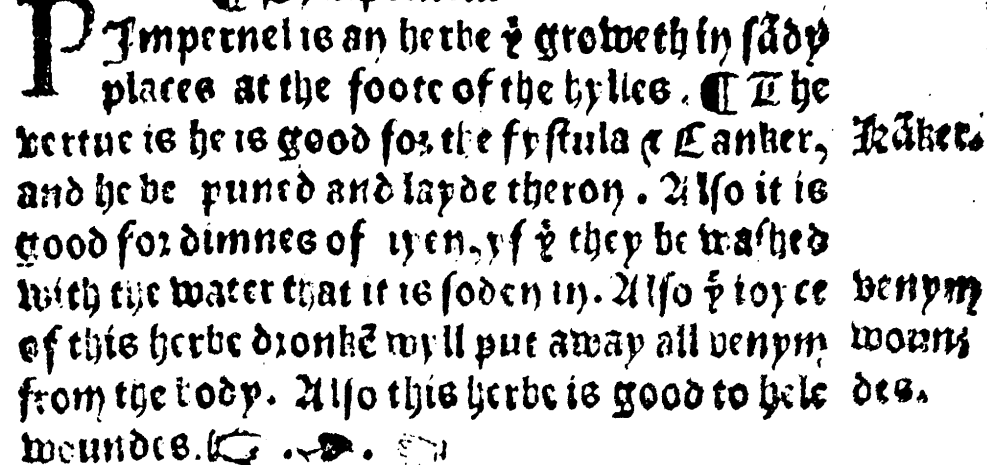 PImpernel is an herbe yͭ groweth in sādy
places at the foote of the hylles. ¶ The
vertue is he is good for the fystula ⁊ Canker,
and he be puned and layde theron. Also it is
good for dimnes of iyen, yf yͭ they be washed
with the water that it is soden in. Also yͤ ioyce
of this herbe dronkē wyll put away all venym
from the body. Also this herbe is good to hele
woundes.
Kāker.
venym
woun⸗
des.